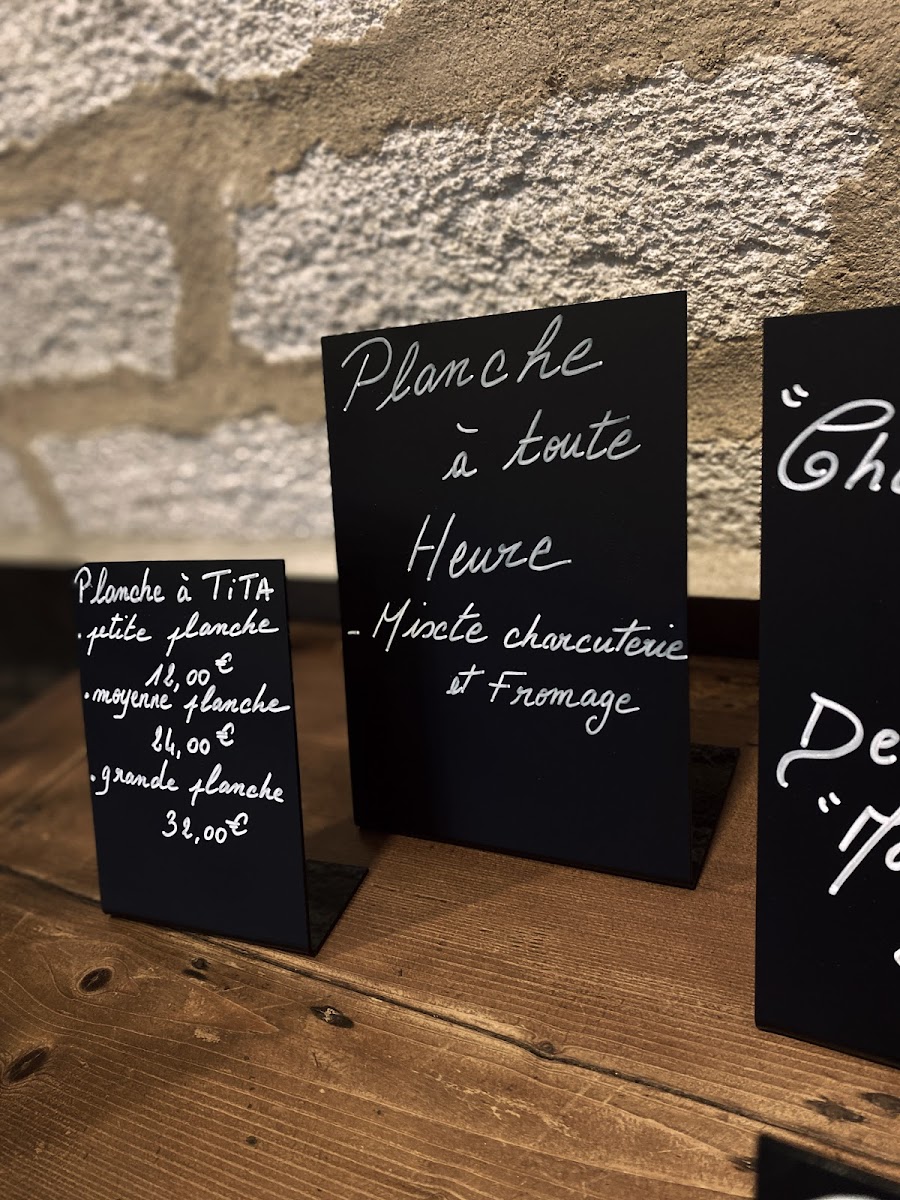 Planche à TiTA
. petite planche
12,00 €
. moyenne planche
24,00 €
. grande planche
32,00 €
Planche
à toute
Heure
- Mixte charcuterie
et Fromage
De